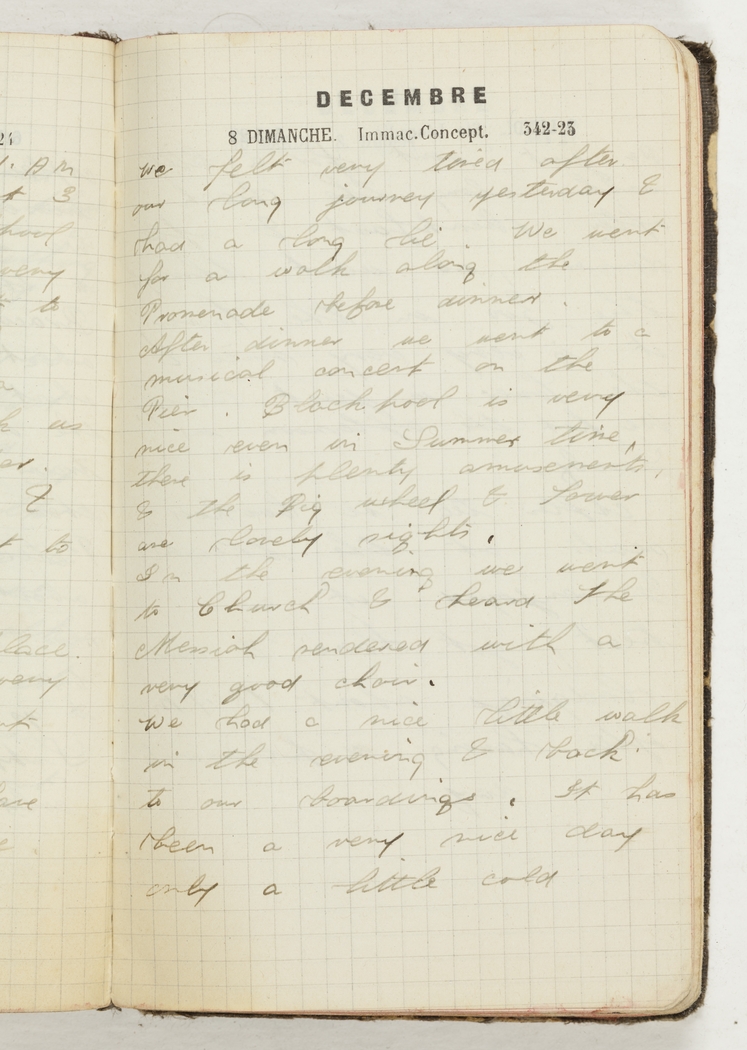 DECEMBRE
8 DIMANCHE. Immac. Concept. 342-23
We felt very tired after
our long journey yesterday &
had a long lie. We went
for a walk along the
Promenade before dinner.
After dinner we went to a
musical concert on the
Pier. Blackpool is very
nice even in Summer time,
there is plenty amusements,
& the Big wheel & Tower
are lovely sights.
In the evening we went
to Church & heard The
Messiah rendered with a
very good choir.
We had a nice little walk
in the evening & back
to our boardings. It has
been a very nice day
only a little cold